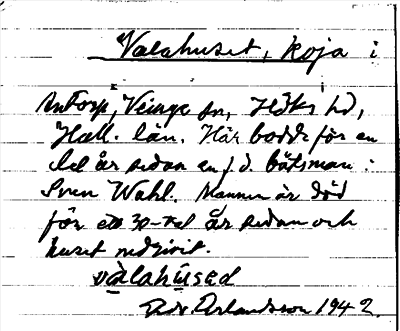 Valahuset, koja i
Antorp, Veinge sn, Höks hd,
Hall. län. Här bodde för en
del år sedan en f.d. båtsman:
Sven Wahl. Mannen är död
för ett 30-tal år sedan och
huset nedrivit.
vàlahùsed
Adv Arlandsson 1942.